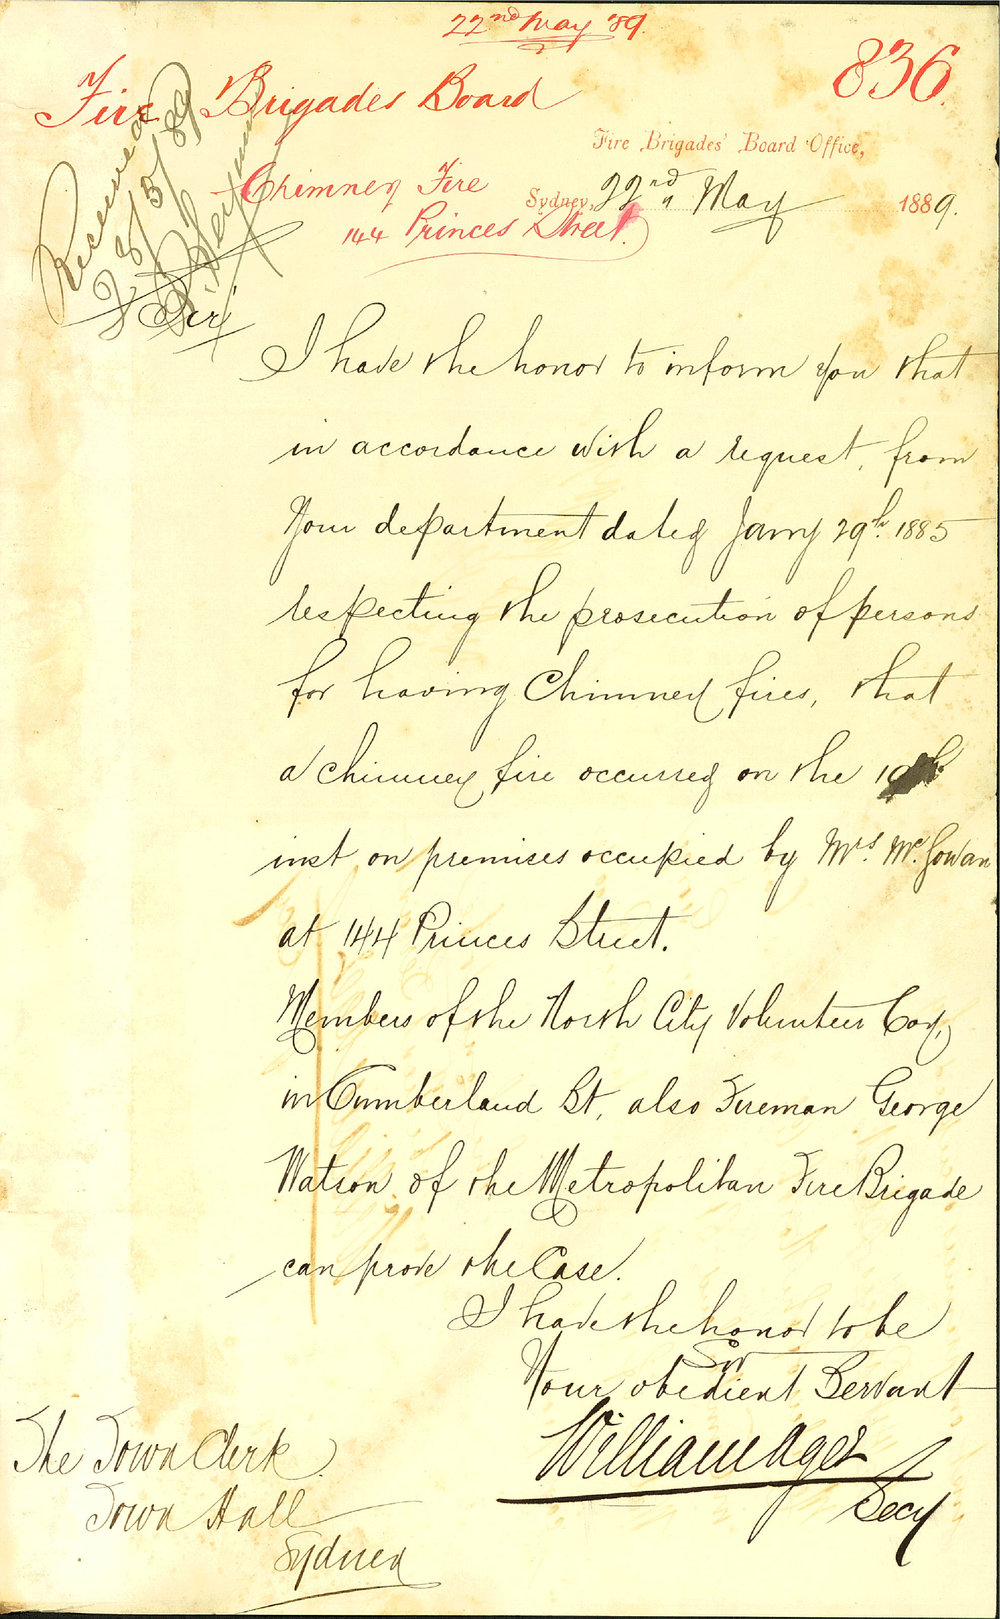 22nd May '89.
836.
Fire Brigades Board
Fire Brigades' Board Office,
Chimney Fire
Sydney, 22nd May 1889.
144 Princes Street.
Received
Sir,
I have the honor to inform you that
in accordance with a request, from
Your department dated Jany 29th. 1885
respecting the prosecution of persons
for having Chimney fires, that
a chimney fire occurred on the 19th
inst on premises occupied by Mrs. Mc.Gowan
at 144 Princes Street.
Members of the North City Volunteer Coy,
in Cumberland St, also Fireman George
Watson of the Metropolitan Fire Brigade
can prove the Case.
I have the honor to be
Sir
Your obedient Servant
William Ager
Secy
The Town Clerk.
Town Hall
Sydney